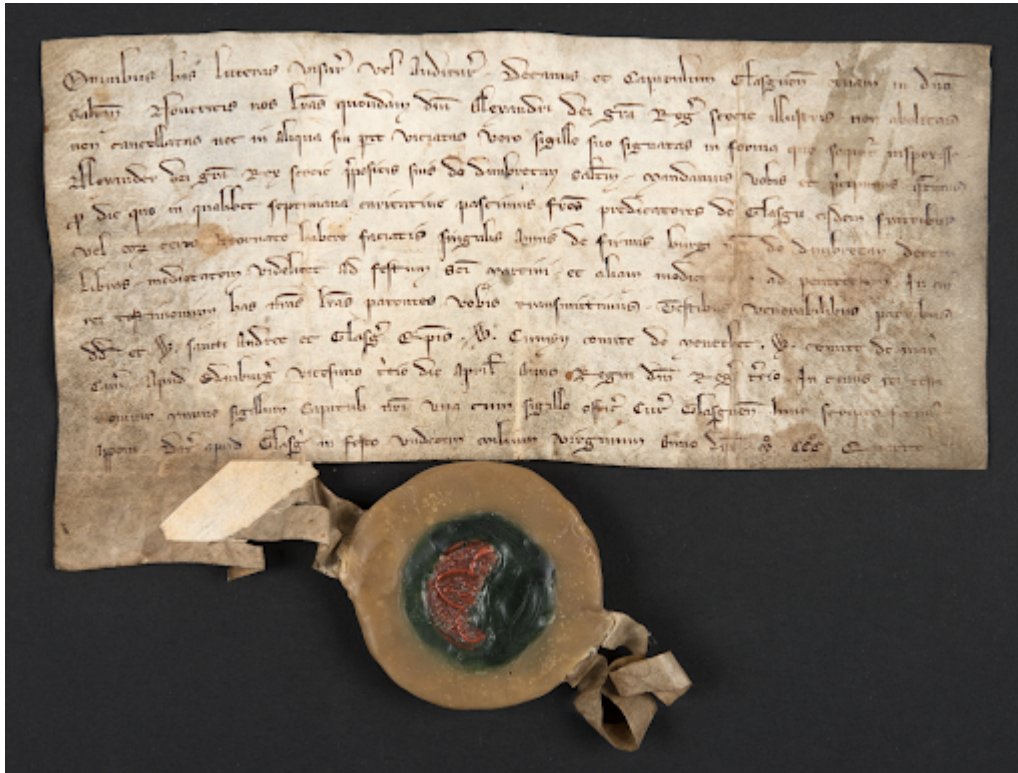 Omnibus has litteras visur' vel auditur' . Decanus et Capitulum Glasguen̄ in dn̄o
salt̄m Noveritis nos lr̄as quondam dn̄i Alexandri dei gr̄a Reḡ scocie illustris non abolitas
non cancellatas nec in aliqua sui pt̄e viciatas vero sigillo suo signatas in forma que sequit' inspexisse
Alexander dei gr̄a Rex scocie p̄positis suis de dunbretan salt̄m . mandamus vobis et
p̱ die quo in qualibet septimana caritative pascimus fr̄es predicatores de Glasgu eisdem fratribus
vel eor̄ certo Attornato habere faciatis singulis annis de firmis burgi de dunbretan decem
libras . medietatem videlicet ad festum sc̄i martini . et aliam medie ad In cui'
rei testimonium has n̄ras lr̄as patentes vobis transmittimus . Testibus venerabilibus patribus
et W . sancti Andree et Glasḡ Ep̄is . W . Cumyn comite de menethet . W . comite de marr
Apud Edinburḡ vicesimo t̄cio die April' Anno Regni dn̄i Reḡ t̄cio . In cuius rei testi
monium sigillum Capituli nr̄i una cum sigillo offic' Cur' Glasguen̄ huic scripto
appon̄ Dat' apud Glasḡ in festo undecim milium virginum Anno dn̄i m̊ ccc